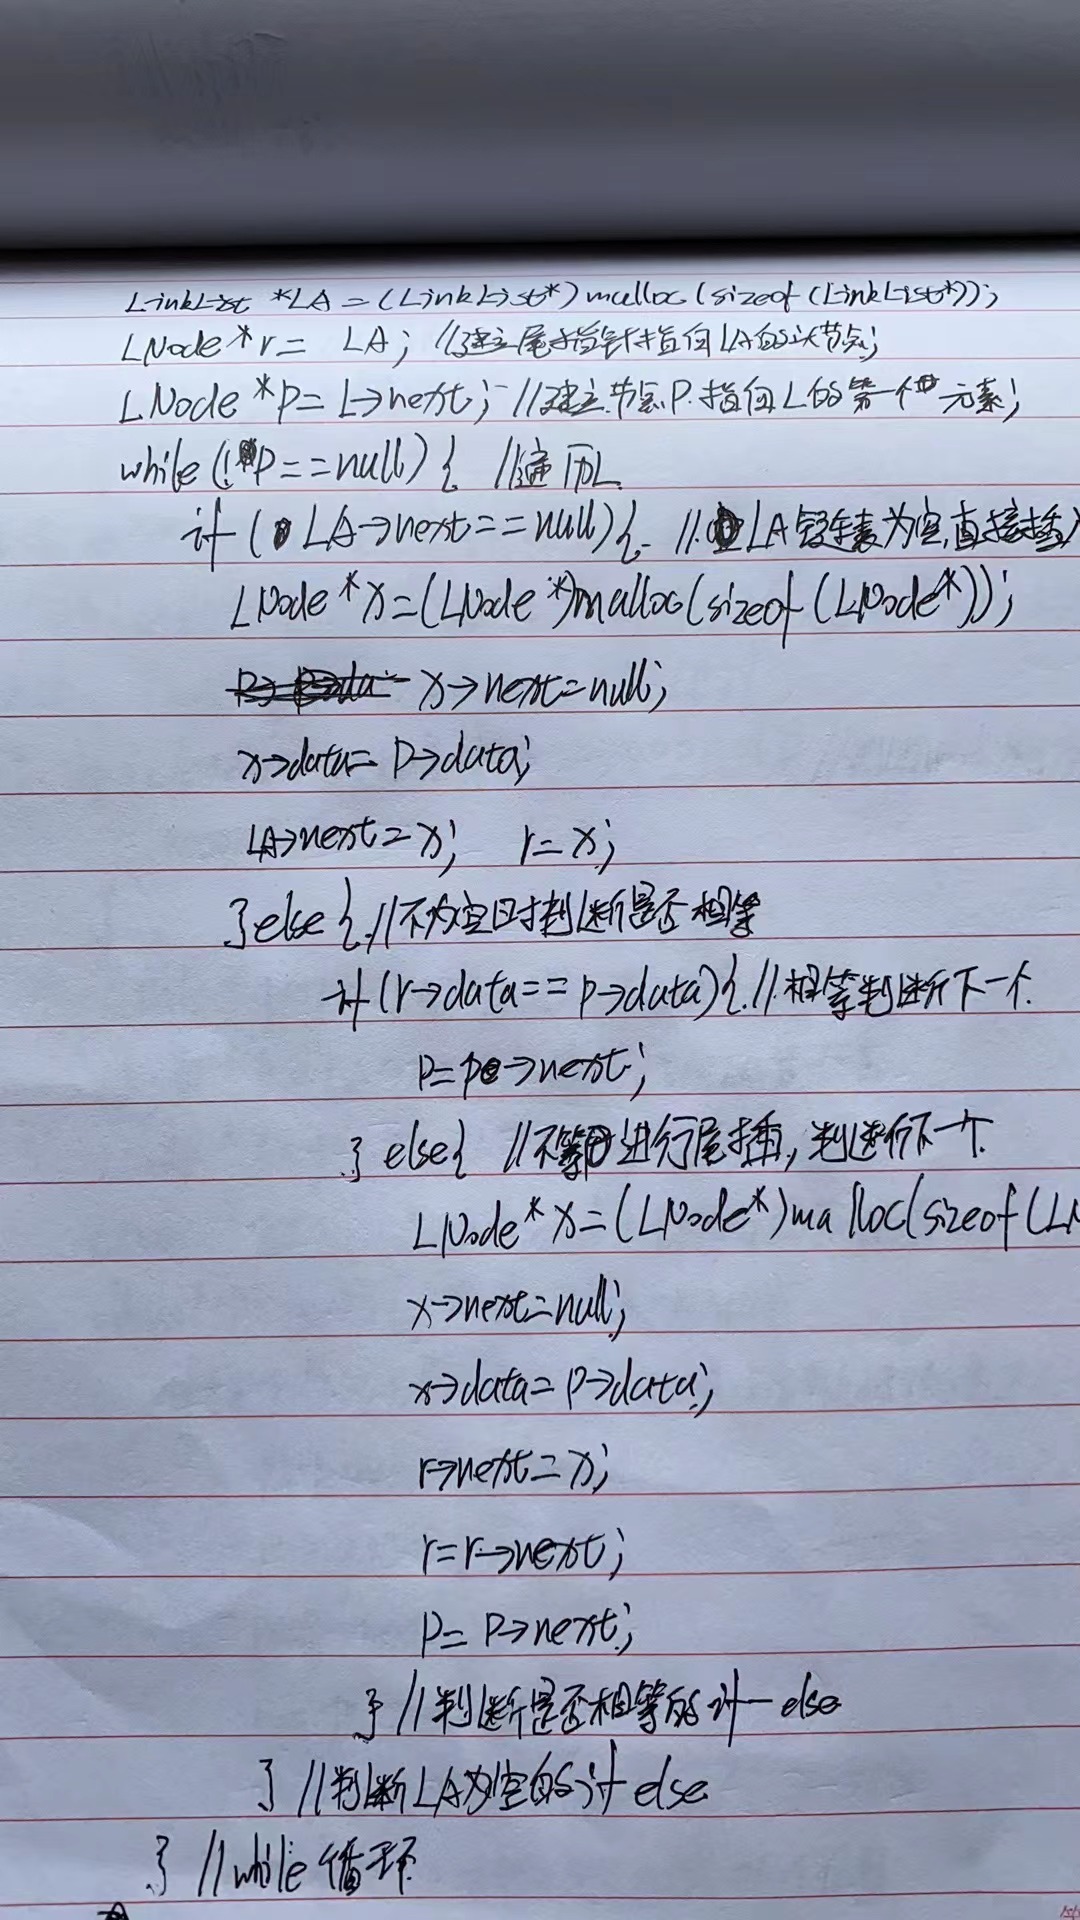 LinkList *LA = (LinkList*)malloc(sizeof(LinkList*));
LNode *r = LA; //建立尾指针指向LA的头节点;
LNode *P = L->next; //建立节点P.指向L的第一个元素;
while(!P==null){ //遍历L
if(LA->next==null){ //LA链表为空,直接插入
LNode *x=(LNode*)malloc(sizeof(LNode*));
x->next=null;
x->data=P->data;
LA->next=x; r=x;
}else{ //不为空时判断是否相等
if(r->data==p->data){ //相等判断下一个.
P=p->next;
}else{ //不等进行尾插,判断下一个.
LNode *x=(LNode*)malloc(sizeof(LN
x->next=null;
x->data=P->data;
r->next=x;
r=r->next;
P=P->next;
} //判断是否相等的if-else
} //判断LA为空的if else
} //while循环